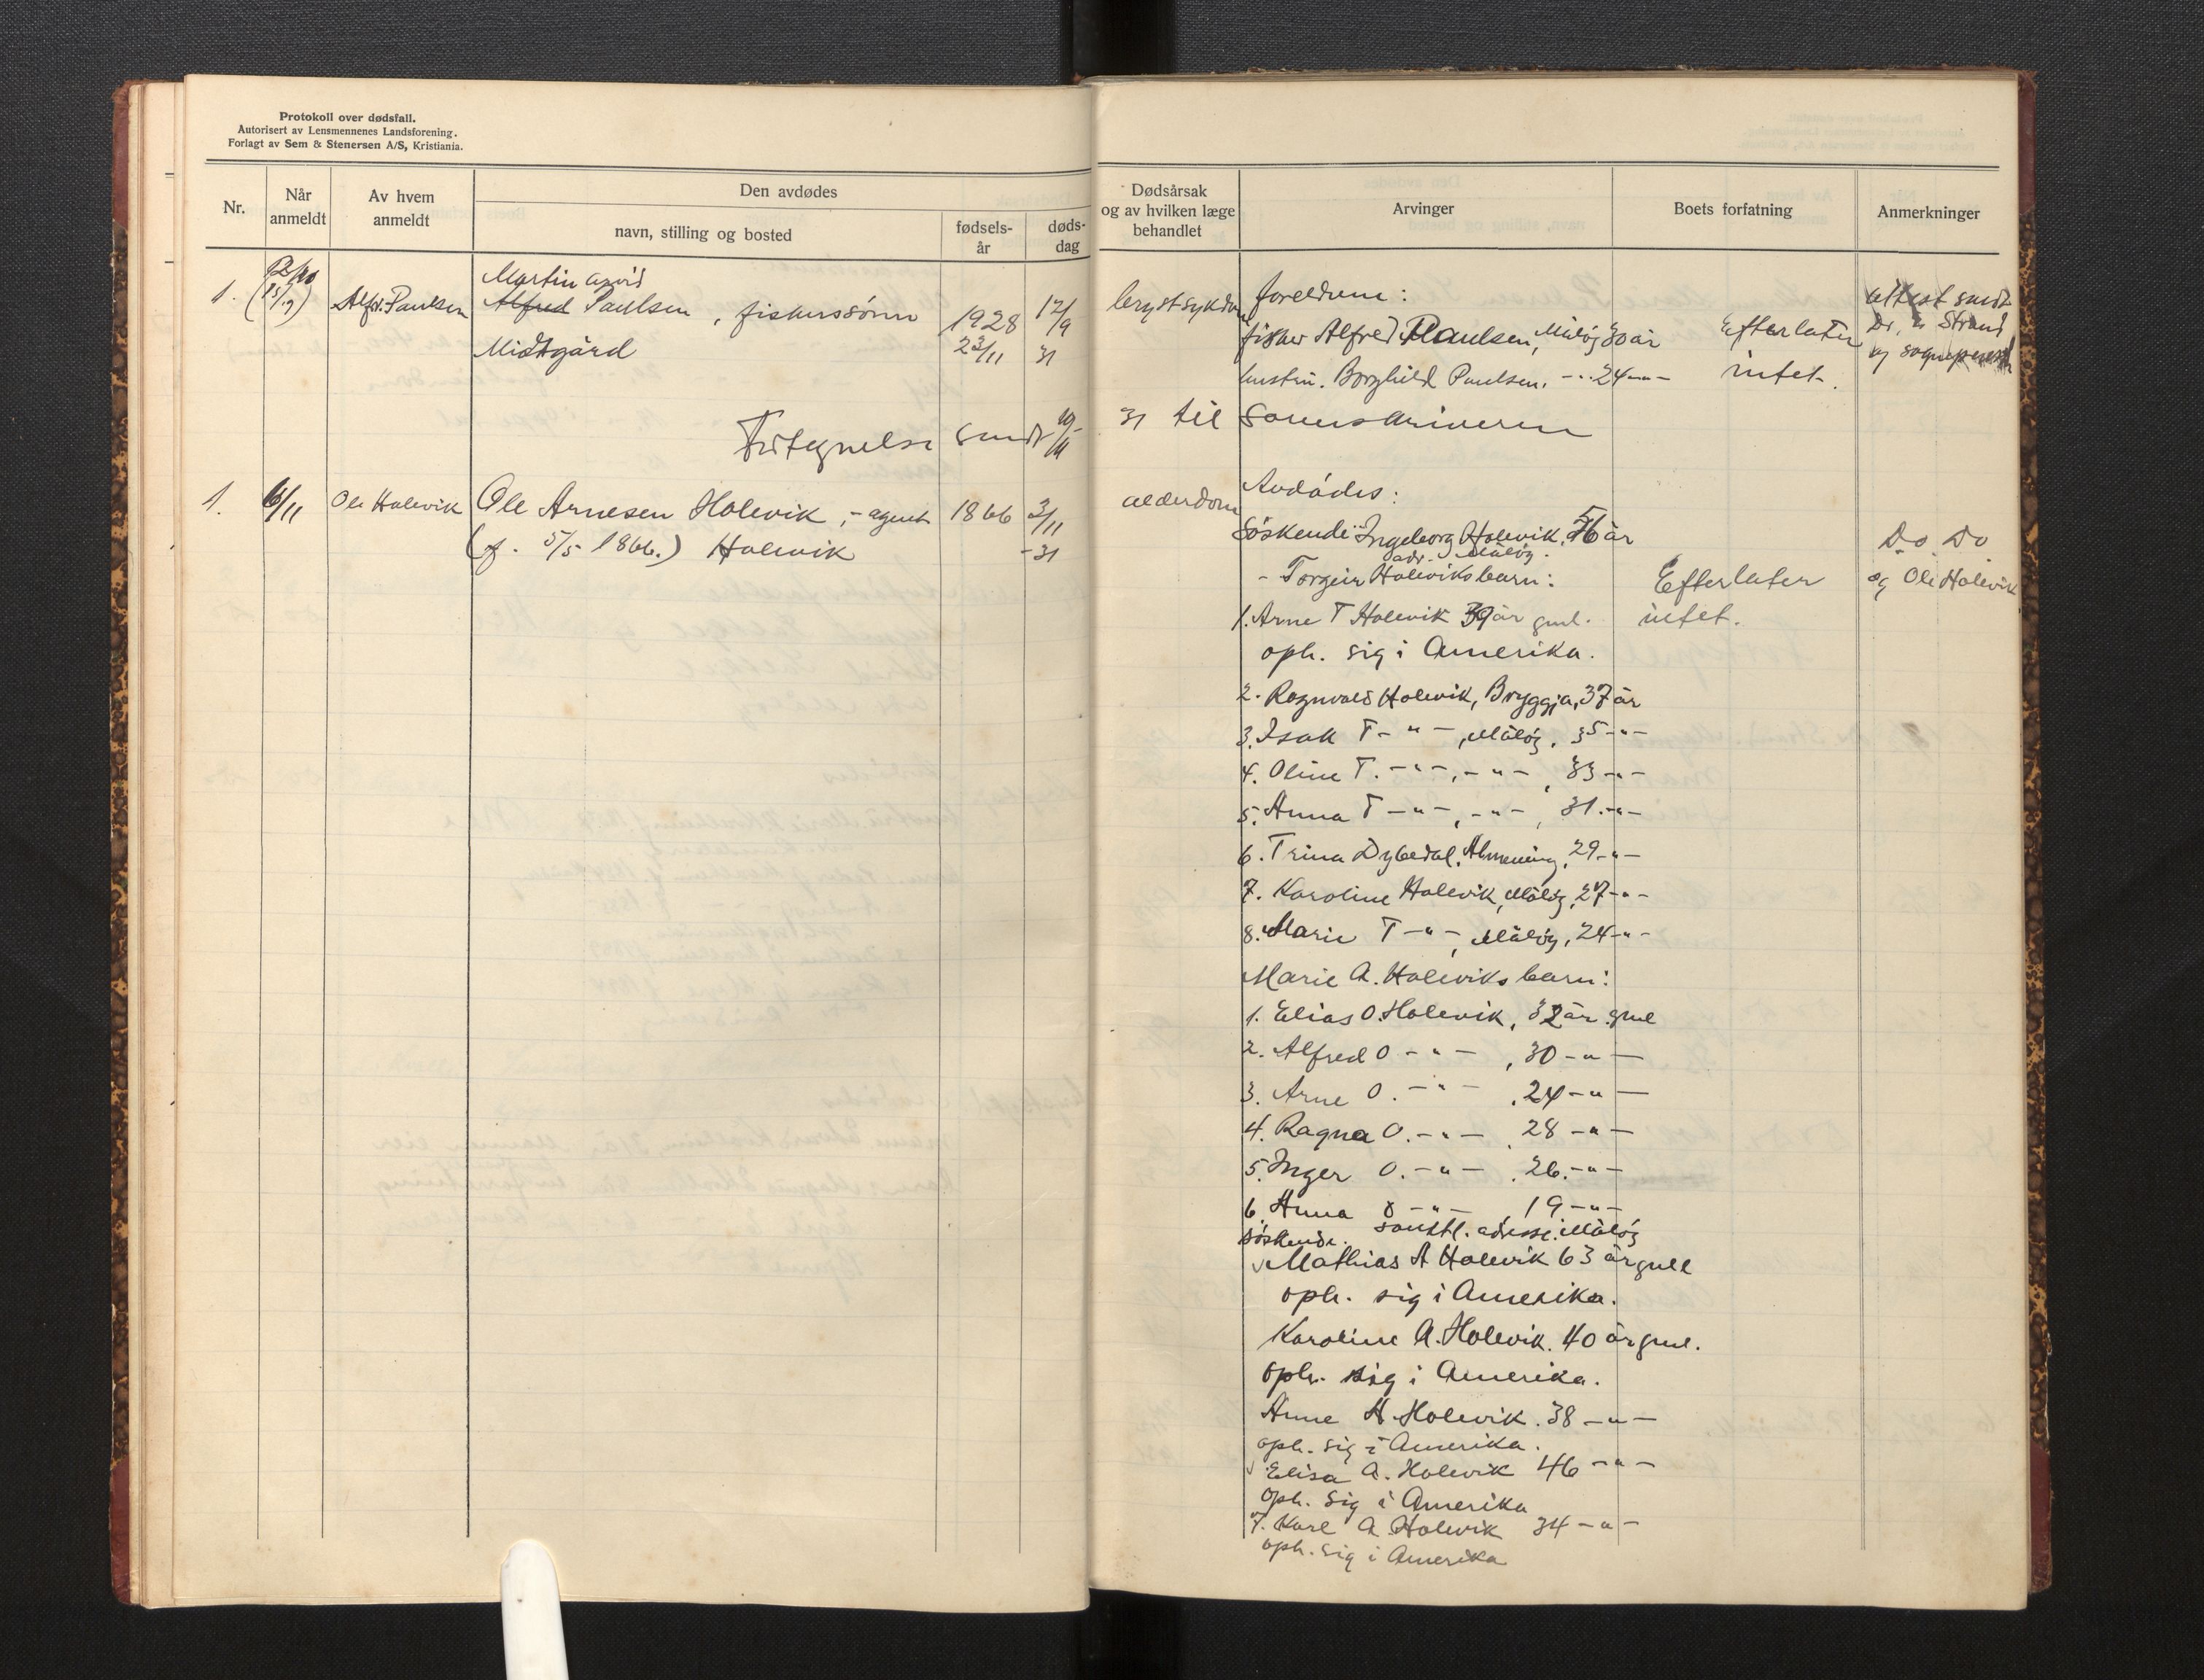 Protokoll over dødsfall.
Autorisert av Lensmennenes Landsforening.
Forlagt av Sem & Stenersen A/S, Kristiania.
Nr.
Når anmeldt
Av hvem anmeldt
Den avdødes
navn, stilling og bosted
fødsels-år
døds-dag
Dødsårsak og av hvilken læge behandlet
Arvinger
Boets forfatning
Anmerkninger
1. (15/9) Alfr. Paulsen
Martin Arvid
Alfred Paulsen, fiskerssönn 1928 12/9
Midtgård 23/11 31
brystsykdom
foreldrene:
fisker Alfred Paulsen, Målöy 30 år
hustru. Borghild Paulsen. -"- 24 -"-
Efterlater
intet.
attest sendt
Dr. Strand
og sogneprest
Fortegnelse sendt 10/11 31 til Sorenskriveren
1. 6/11 Ole Holevik Ole Arnesen Holevik, - agent 1866 3/11
(f. 5/5 1866.) Holevik -31
alderdom
Avdödes:
Söskende: Ingeborg Holevik, 56 år
adr. Målöy.
- Torgeir Holeviks barn:
1. Arne T Holevik 39 år gml.
oph. sig i Amerika.
2. Ragnvald Holevik, Bryggja, 37 år
3. Isak T - " -, Målöy, 35 -"-
4. Oline T. - " -, - " -, 33 -"-
5. Anna T - " -, - " -, 31 -"-
6. Trina Dybedal, Almenning, 29 -"-
7. Karoline Holevik, Målöy, 27 -"-
8. Marie T - " -, Målöy, 24 -"-
Marie A. Holeviks barn:
1. Elias O. Holevik, 32 år gml
2. Alfred O - " -, 30 - " -
3. Arne O. - " -, 24 - " -
4. Ragna O. - " -, 28 - " -
5. Inger O. - " -, 26. - " -
6. Anna O - " -, 19 - " -
samtl. adresse. Målöy
söskende.
Mathias A Holevik 63 år gml
oph. sig i Amerika.
Karoline A. Holevik. 40 år gml.
oph. sig i Amerika.
Anne A Holevik. 38 - " -
oph. sig i Amerika.
Elisa A. Holevik 46 - " -
oph. sig i Amerika
7. Karl A Holevik 34 - " -
oph. sig i Amerika
Efterlater
intet.
Do. Do
og Ole Holevik